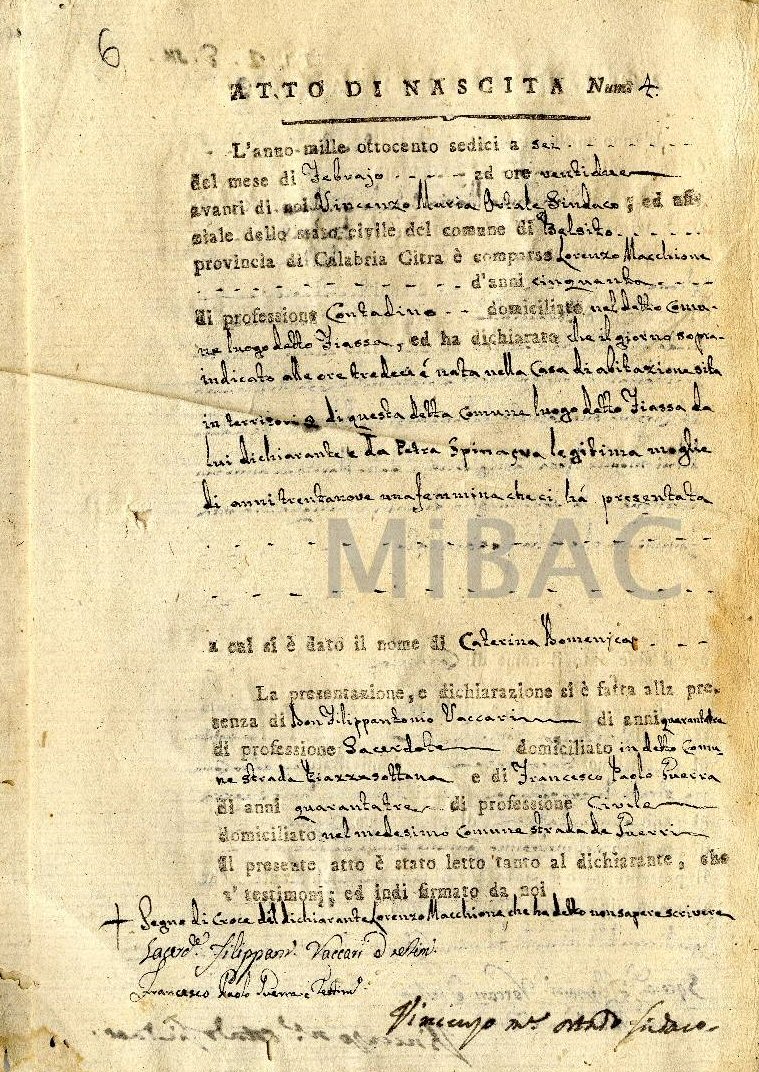 6
ATTO DI NASCITA Num° 4.
L'anno mille ottocento sedici a sei
del mese di Febrajo ad ore ventidue
avanti di noi Vincenzo Maria Ortale Sindaco, ed uffi
ziale dello stato civile del comune di Belsito
provincia di Calabria Citra è comparso Lorenzo Macchione
d'anni cinquanta
di professione Contadino domiciliato nel detto Comu
ne luogo detto Fiassa, ed ha dichiarato che il giorno sopra
indicato alle ore tredeci é nata nella Casa di abitazione sita
in territorio di questa detta Comune luogo detto Fiassa da
lui dichiarante e da Petra Spina sua legitima moglie
di anni trentanove una femmina che ci há presentata
MiBAC
a cui si è dato il nome di Caterina Domenica
La presentazione, e dichiarazione si è fatta alla pre
senza di Don Filippantonio Vaccari di anni quarantatre
di professione Sacerdote domiciliato in detto Comu
ne strada Piazza sottana e di Francesco Paolo Guerra
di anni quarantatre di professione Civile
domiciliato nel medesimo Comune strada de Guerri
Il presente atto è stato letto tanto al dichiarante, che
a' testimonj; ed indi firmato da noi
Segno di Croce del dichiarante Lorenzo Macchione, che ha detto non sapere scrivere
Sacerd.te Filippant.o Vaccari Testim.
Francesco Paolo Guerra Testim.o
Vincenzo M.a Ortale Sindaco